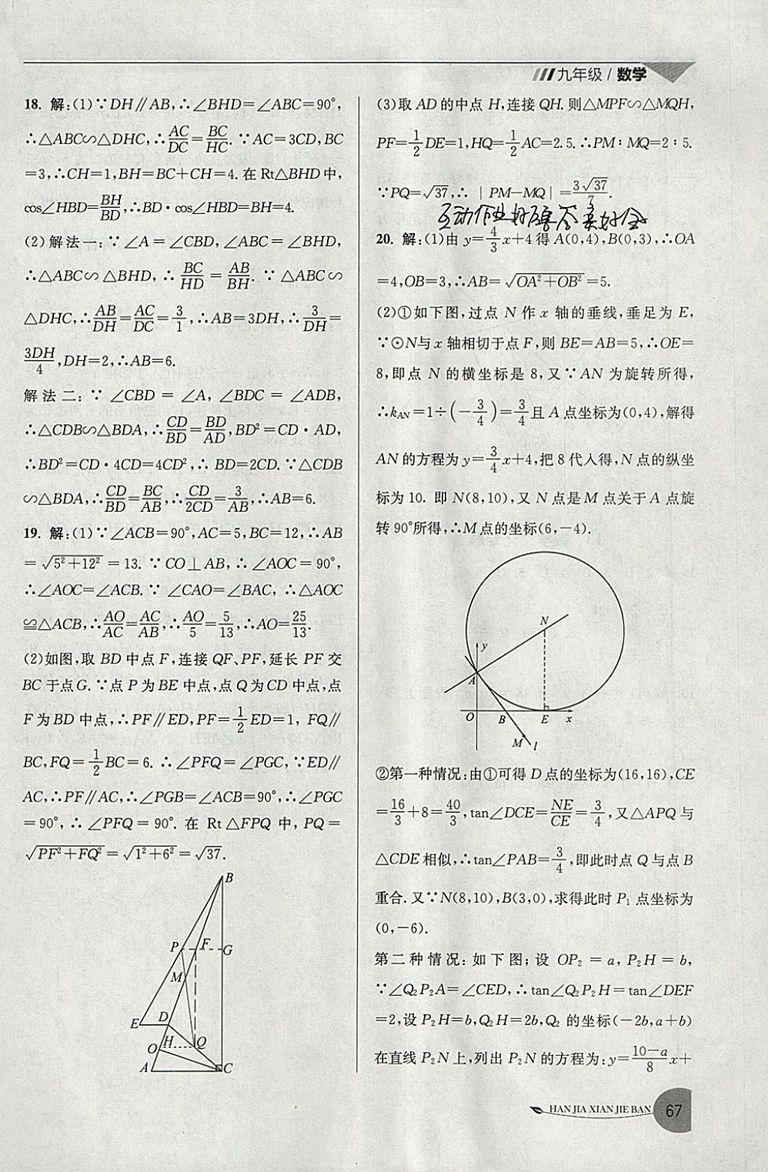 九年级/数学
18. 解:(1)∵DH∥AB,∴∠BHD=∠ABC=90°,
∴△ABC∽△DHC,∴AC/DC=BC/HC. ∵AC=3CD,BC
=3,∴CH=1,BH=BC+CH=4. 在Rt△BHD中,
cos∠HBD=BH/BD,∴BD·cos∠HBD=BH=4.
(2)解法一:∵∠A=∠CBD,∠ABC=∠BHD,
∴△ABC∽△BHD, ∴BC/HD=AB/BH. ∵△ABC∽
△DHC,∴AB/DH=AC/DC=3/1,∴AB=3DH,∴3/DH=
3DH/4,DH=2,∴AB=6.
解法二:∵ ∠CBD=∠A,∠BDC=∠ADB,
∴△CDB∽△BDA,∴CD/BD=BD/AD,BD²=CD·AD,
∴BD²=CD·4CD=4CD²,∴ BD=2CD. ∵△CDB
∽△BDA,∴CD/BD=BC/AB,∴CD/2CD=3/AB,∴AB=6.
19. 解:(1)∵∠ACB=90°,AC=5,BC=12,∴AB
=√(5²+12²)=13. ∵CO⊥AB,∴∠AOC=90°,
∴∠AOC=∠ACB. ∵ ∠CAO=∠BAC, ∴△AOC
≌△ACB,∴AO/AC=AC/AB,∴AO/5=5/13,∴AO=25/13.
(2)如图,取BD中点F,连接QF、PF,延长PF交
BC于点G. ∵点P为BE中点,点Q为CD中点,点
F为BD中点,∴PF∥ED,PF=1/2ED=1, FQ∥
BC,FQ=1/2BC=6. ∴∠PFQ=∠PGC,∵ED∥
AC,∴PF∥AC,∴∠PGB=∠ACB=90°,∴∠PGC
=90°,∴∠PFQ=90°. 在Rt△FPQ中,PQ=
√(PF²+FQ²)=√(1²+6²)=√37.
B
P F G
M
E D
H Q
O
A C
(3)取AD的中点H,连接QH. 则△MPF∽△MQH,
PF=1/2DE=1,HQ=1/2AC=2.5. ∴PM∶MQ=2∶5.
∵PQ=√37,∴ |PM-MQ|=3√37/7.
20. 解:(1)由y=4/3x+4得A(0,4),B(0,3),∴OA
=4,OB=3,∴AB=√(OA²+OB²)=5.
(2)①如下图,过点N作x轴的垂线,垂足为E,
∵⊙N与x轴相切于点F,则BE=AB=5,∴OE=
8,即点N的横坐标是8,又∵AN为旋转所得,
∴k_AN=1÷(-3/4)=3/4且A点坐标为(0,4),解得
AN的方程为y=3/4x+4,把8代人得,N点的纵坐
标为10. 即N(8,10),又N点是M点关于A点旋
转90°所得,∴M点的坐标(6,-4).
N
y
A
O B E x
M l
②第一种情况:由①可得D点的坐标为(16,16),CE
=16/3+8=40/3,tan∠DCE=NE/CE=3/4,又△APQ与
△CDE相似,∴tan∠PAB=3/4,即此时点Q与点B
重合. 又∵N(8,10),B(3,0),求得此时P₁点坐标为
(0,-6).
第二种情况:如下图;设OP₂=a,P₂H=b,
∵∠Q₂P₂A=∠CED,∴tan∠Q₂P₂H=tan∠DEF
=2,设P₂H=b,Q₂H=2b,Q₂的坐标(-2b,a+b)
在直线P₂N上,列出P₂N的方程为:y=(10-a)/8x+
HAN JIA XIAN JIE BAN 67